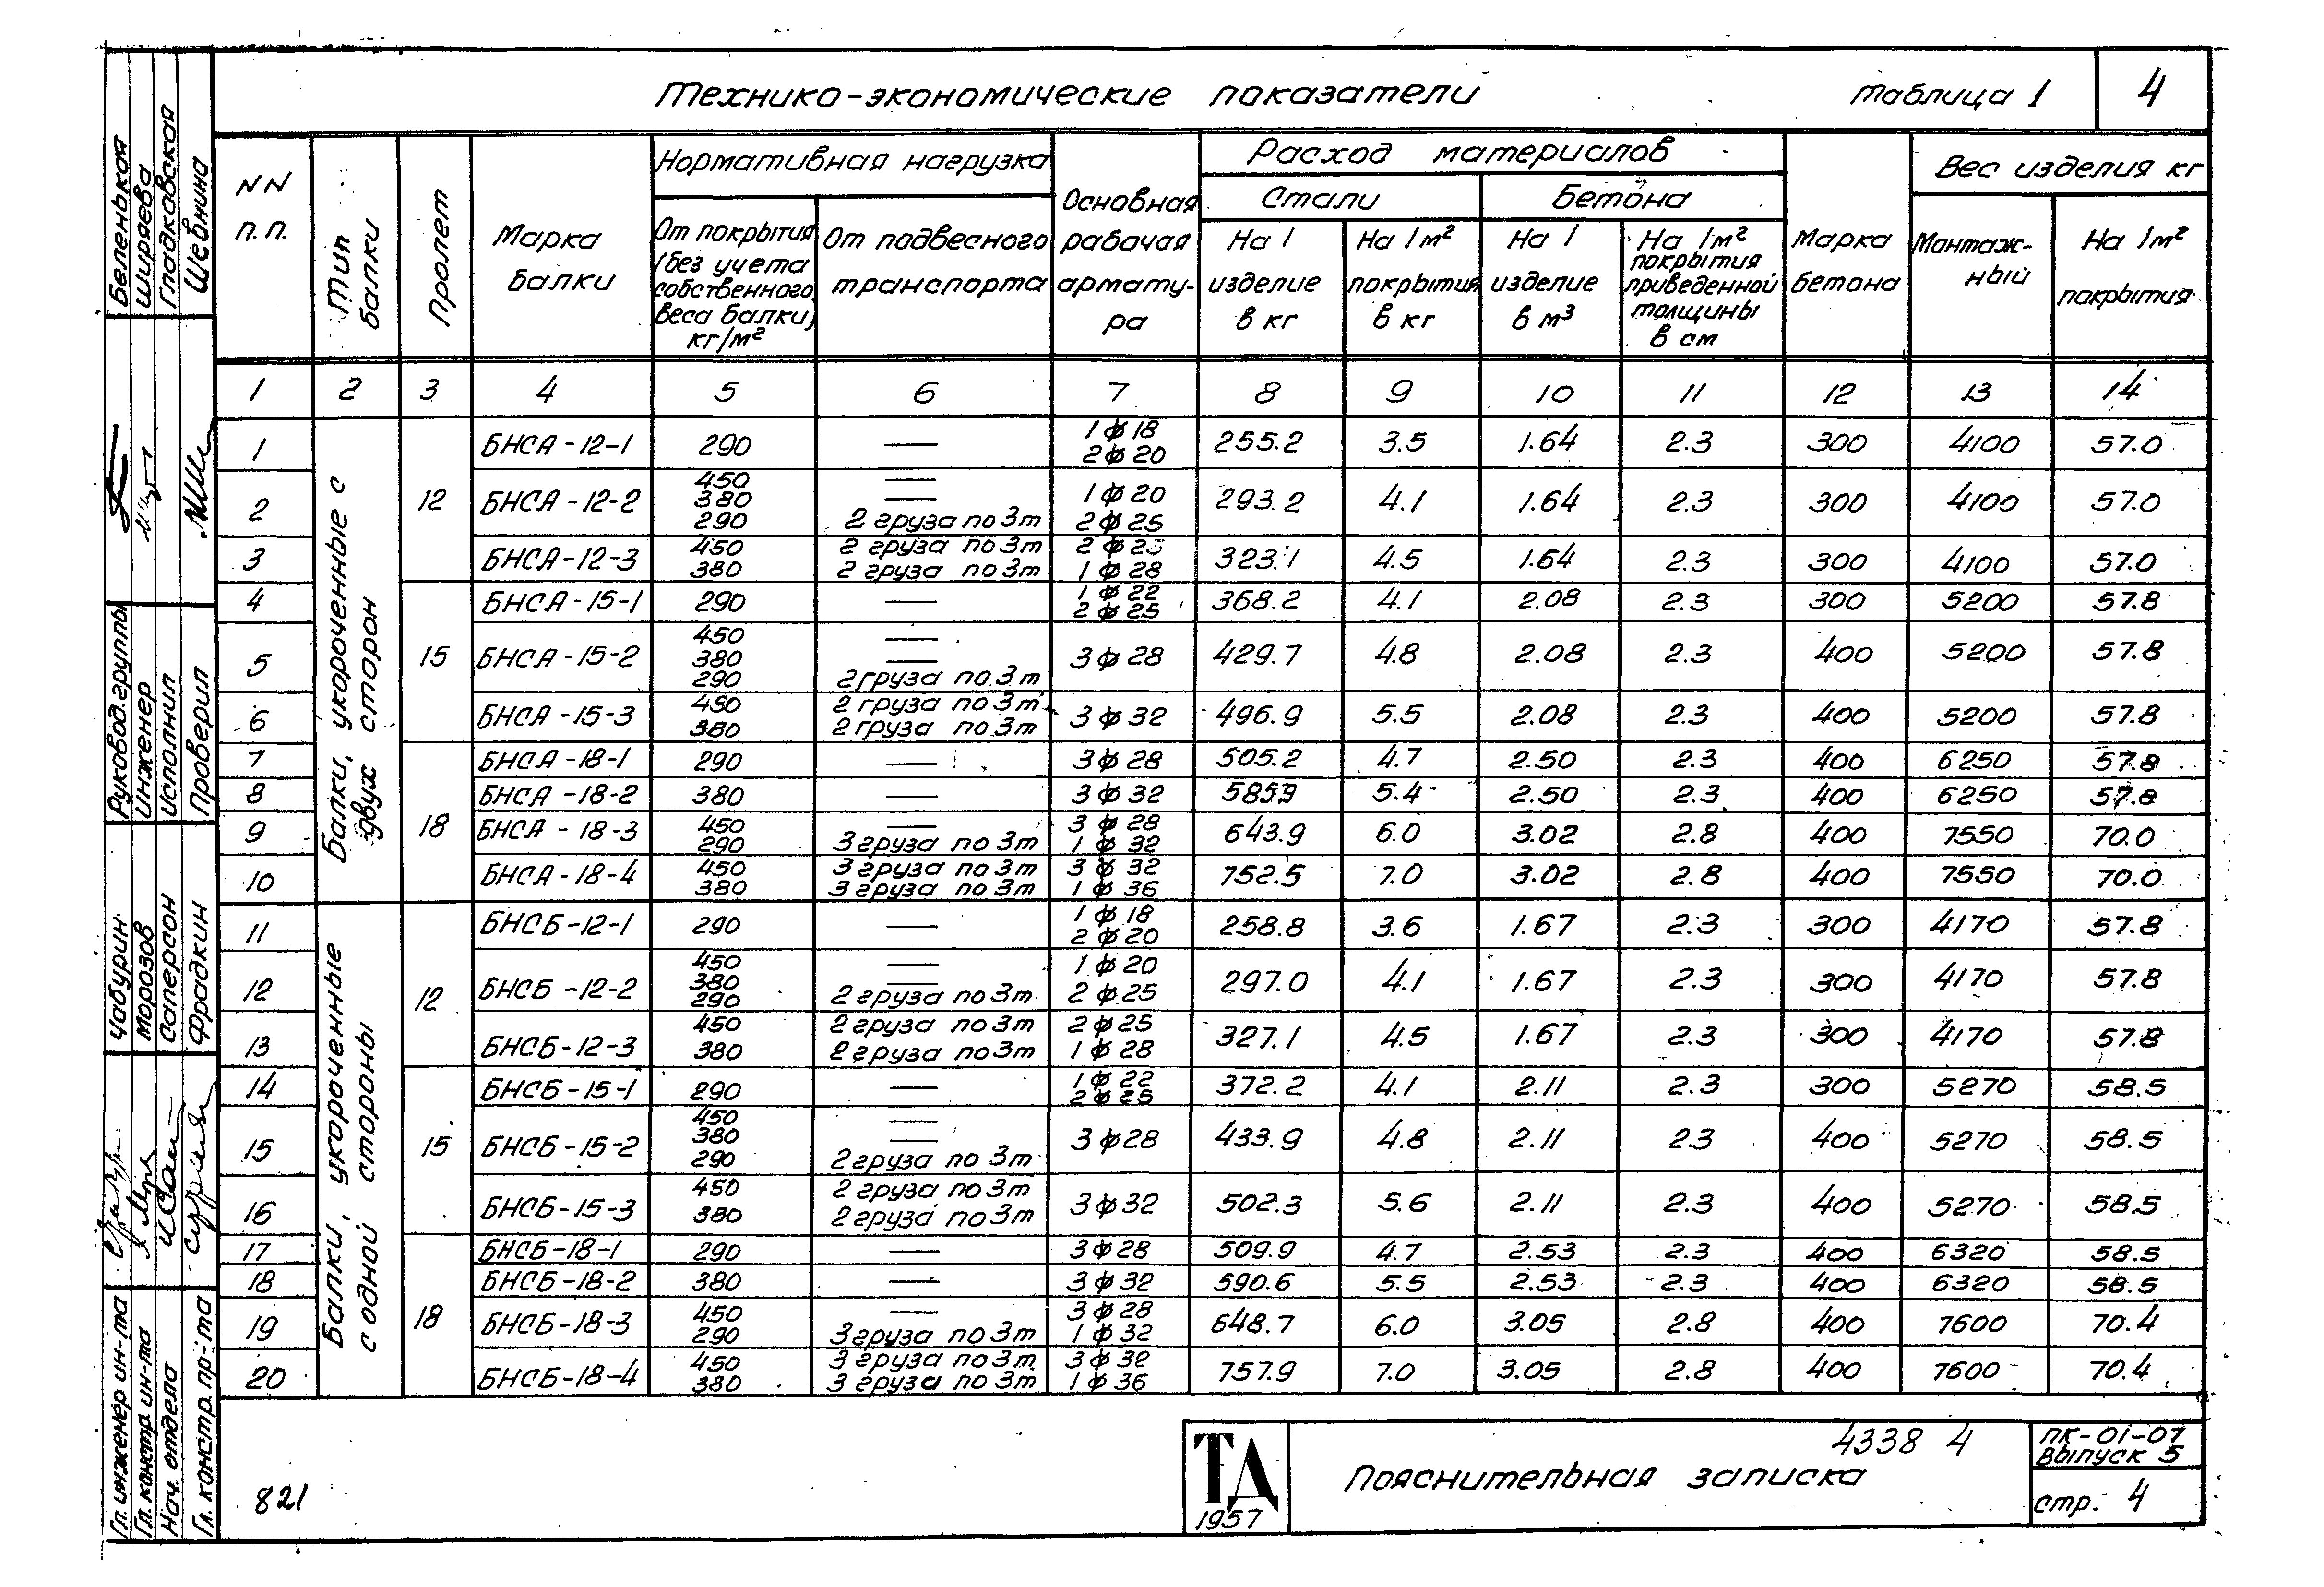 Технико-экономические показатели Таблица 1 4
NN п.п.
Тип балки
Пролет
Марка балки
Нормативная нагрузка
От покрытия (без учета собственного веса балки) кг/м²
От подвесного транспорта
Основная рабочая арматура
Расход материалов
Стали
На 1 изделие в кг
На 1м² покрытия в кг
Бетона
На 1 изделие в м³
На 1м² покрытия приведенной толщины в см
Марка бетона
Вес изделия кг
Монтаж-ный
На 1м² покрытия
1 2 3 4 5 6 7 8 9 10 11 12 13 14
Балки, укороченные с двух сторон
12
1 БНСА-12-1 290 — 1ф18 2ф20 255.2 3.5 1.64 2.3 300 4100 57.0
2 БНСА-12-2 450 — 380 — 290 2 груза по 3т 1ф20 2ф25 293.2 4.1 1.64 2.3 300 4100 57.0
3 БНСА-12-3 450 2 груза по 3т 380 2 груза по 3т 2ф25 1ф28 323.1 4.5 1.64 2.3 300 4100 57.0
15
4 БНСА-15-1 290 — 1ф22 2ф25 368.2 4.1 2.08 2.3 300 5200 57.8
5 БНСА-15-2 450 — 380 — 290 2 груза по 3т 3ф28 429.7 4.8 2.08 2.3 400 5200 57.8
6 БНСА-15-3 450 2 груза по 3т 380 2 груза по 3т 3ф32 496.9 5.5 2.08 2.3 400 5200 57.8
18
7 БНСА-18-1 290 — 3ф28 505.2 4.7 2.50 2.3 400 6250 57.8
8 БНСА-18-2 380 — 3ф32 585.9 5.4 2.50 2.3 400 6250 57.8
9 БНСА-18-3 450 — 290 3 груза по 3т 3ф28 1ф32 643.9 6.0 3.02 2.8 400 7550 70.0
10 БНСА-18-4 450 3 груза по 3т 380 3 груза по 3т 3ф32 1ф36 752.5 7.0 3.02 2.8 400 7550 70.0
Балки, укороченные с одной стороны
12
11 БНСБ-12-1 290 — 1ф18 2ф20 258.8 3.6 1.67 2.3 300 4170 57.8
12 БНСБ-12-2 450 — 380 — 290 2 груза по 3т 1ф20 2ф25 297.0 4.1 1.67 2.3 300 4170 57.8
13 БНСБ-12-3 450 2 груза по 3т 380 2 груза по 3т 2ф25 1ф28 327.1 4.5 1.67 2.3 300 4170 57.8
15
14 БНСБ-15-1 290 — 1ф22 2ф25 372.2 4.1 2.11 2.3 300 5270 58.5
15 БНСБ-15-2 450 — 380 — 290 2 груза по 3т 3ф28 433.9 4.8 2.11 2.3 400 5270 58.5
16 БНСБ-15-3 450 2 груза по 3т 380 2 груза по 3т 3ф32 502.3 5.6 2.11 2.3 400 5270 58.5
18
17 БНСБ-18-1 290 — 3ф28 509.9 4.7 2.53 2.3 400 6320 58.5
18 БНСБ-18-2 380 — 3ф32 590.6 5.5 2.53 2.3 400 6320 58.5
19 БНСБ-18-3 450 — 290 3 груза по 3т 3ф28 1ф32 648.7 6.0 3.05 2.8 400 7600 70.4
20 БНСБ-18-4 450 3 груза по 3т 380 3 груза по 3т 3ф32 1ф36 757.9 7.0 3.05 2.8 400 7600 70.4
821
ТД
1957
Пояснительная записка
4338 4
ПК-01-07
Выпуск 5
стр. 4
Гл. инженер ин-та Чабурин Руковод. группы Беленькая
Гл. констр. ин-та Морозов Инженер Ширяева
Нач. отдела Саперсон Исполнил Гладковская
Гл. констр. пр-та Фрадкин Проверил Шебнина